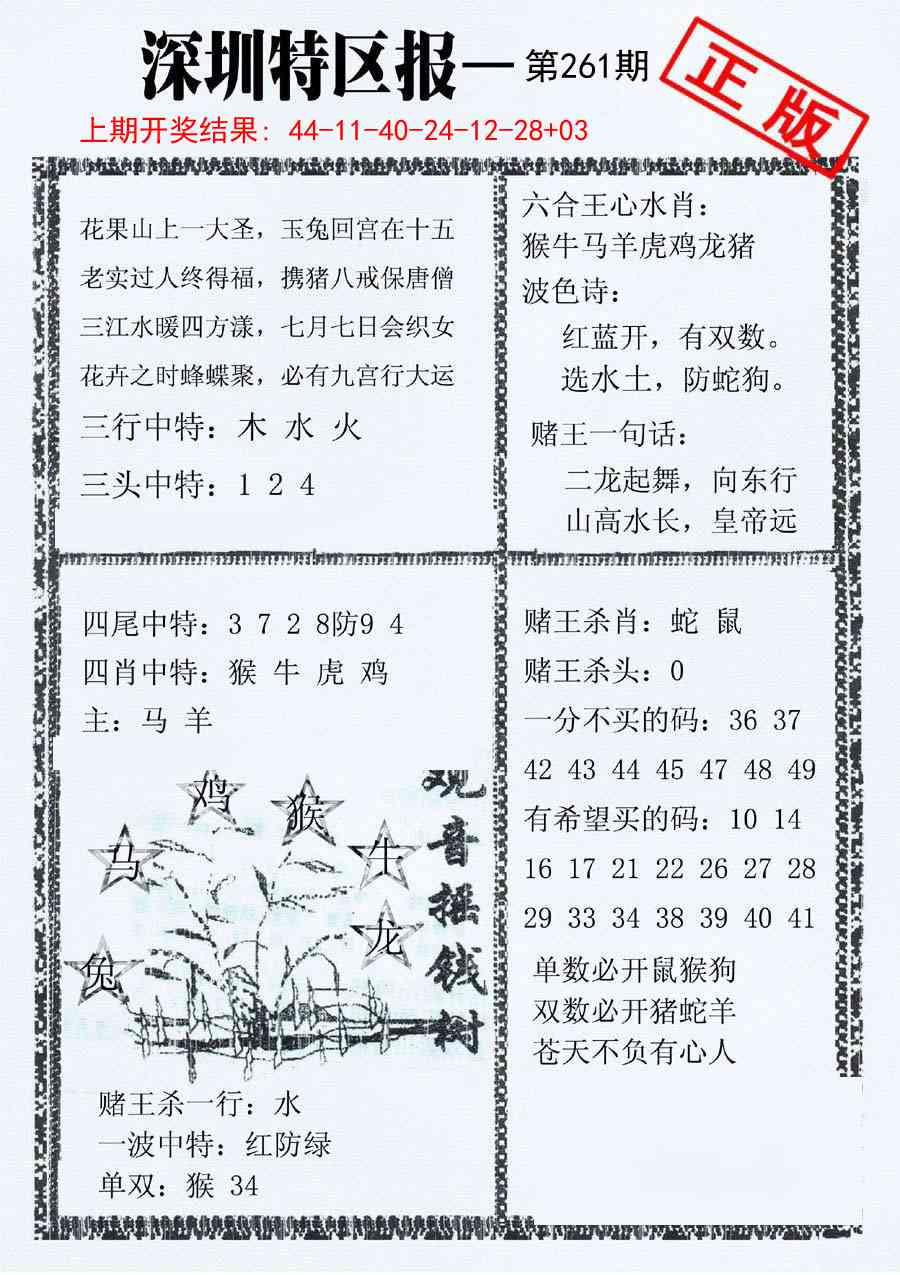 深圳特区报—第261期
正版
上期开奖结果：44-11-40-24-12-28+03
花果山上一大圣，玉兔回宫在十五
老实过人终得福，携猪八戒保唐僧
三江水暖四方漾，七月七日会织女
花卉之时蜂蝶聚，必有九宫行大运
三行中特：木 水 火
三头中特：1 2 4
六合王心水肖：
猴牛马羊虎鸡龙猪
波色诗：
红蓝开，有双数。
选水土，防蛇狗。
赌王一句话：
二龙起舞，向东行
山高水长，皇帝远
四尾中特：3 7 2 8防9 4
四肖中特：猴 牛 虎 鸡
主：马 羊
鸡
猴
马
牛
龙
兔
观音摇钱树
赌王杀一行：水
一波中特：红防绿
单双：猴 34
赌王杀肖：蛇 鼠
赌王杀头：0
一分不买的码：36 37
42 43 44 45 47 48 49
有希望买的码：10 14
16 17 21 22 26 27 28
29 33 34 38 39 40 41
单数必开鼠猴狗
双数必开猪蛇羊
苍天不负有心人